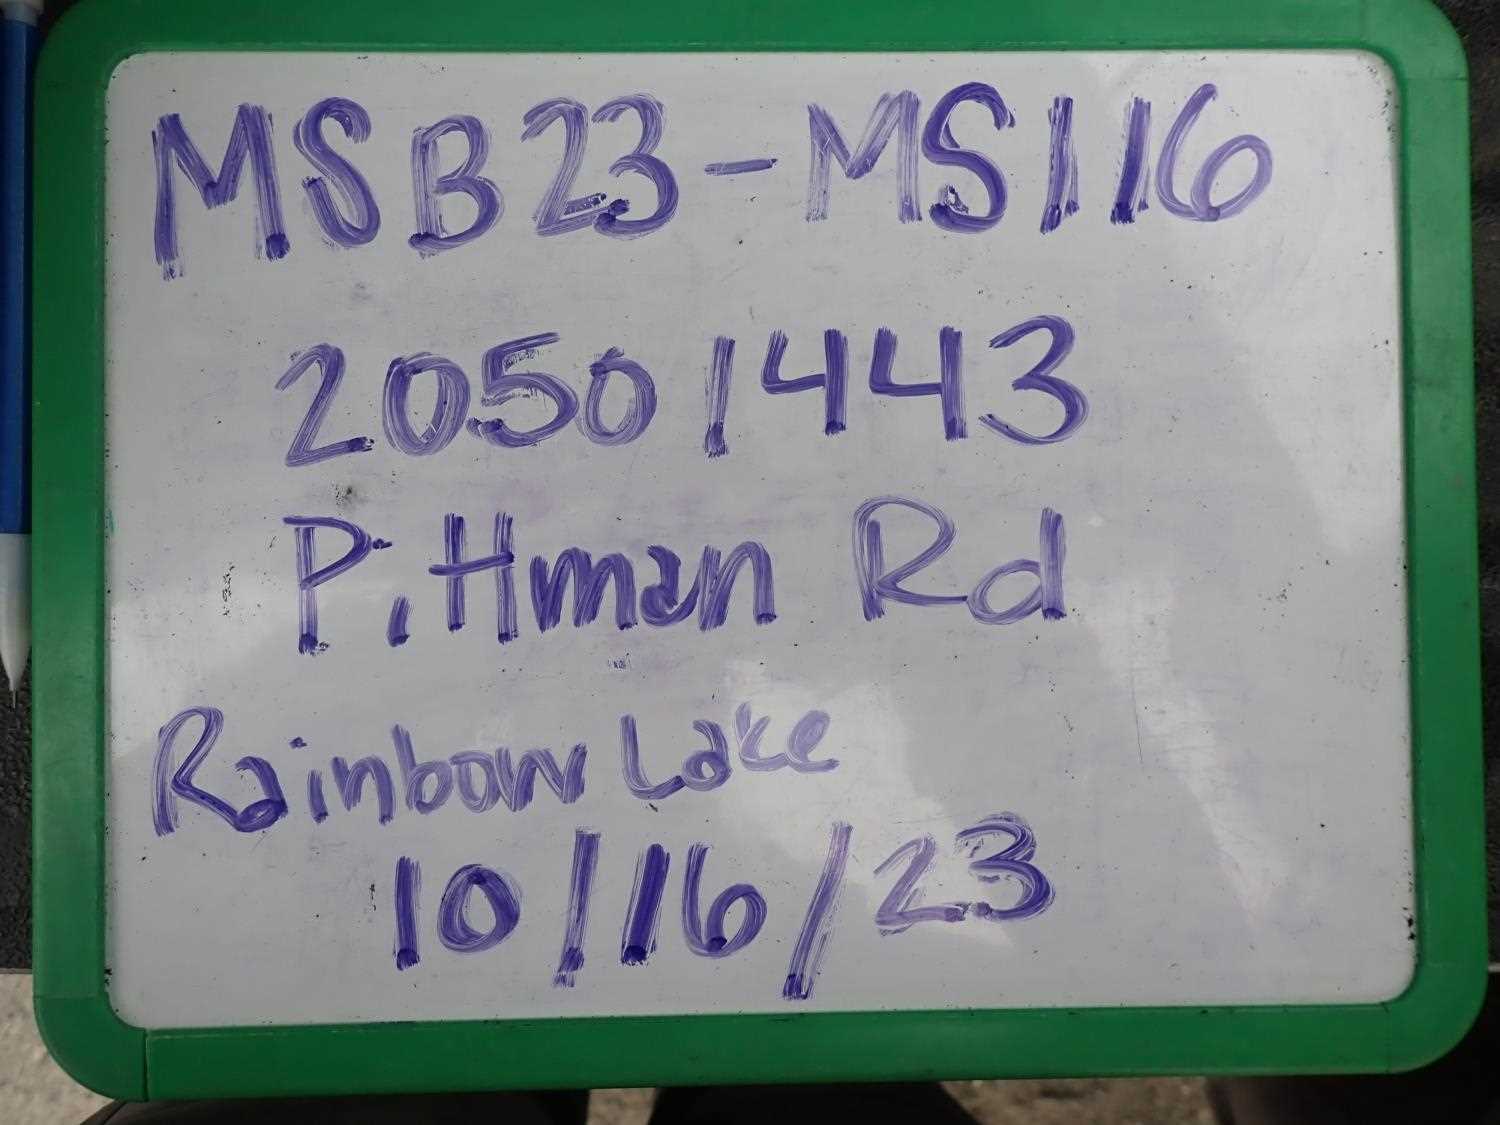 MSB23-MS116
20501443
Pittman Rd
Rainbow Lake
10/16/23